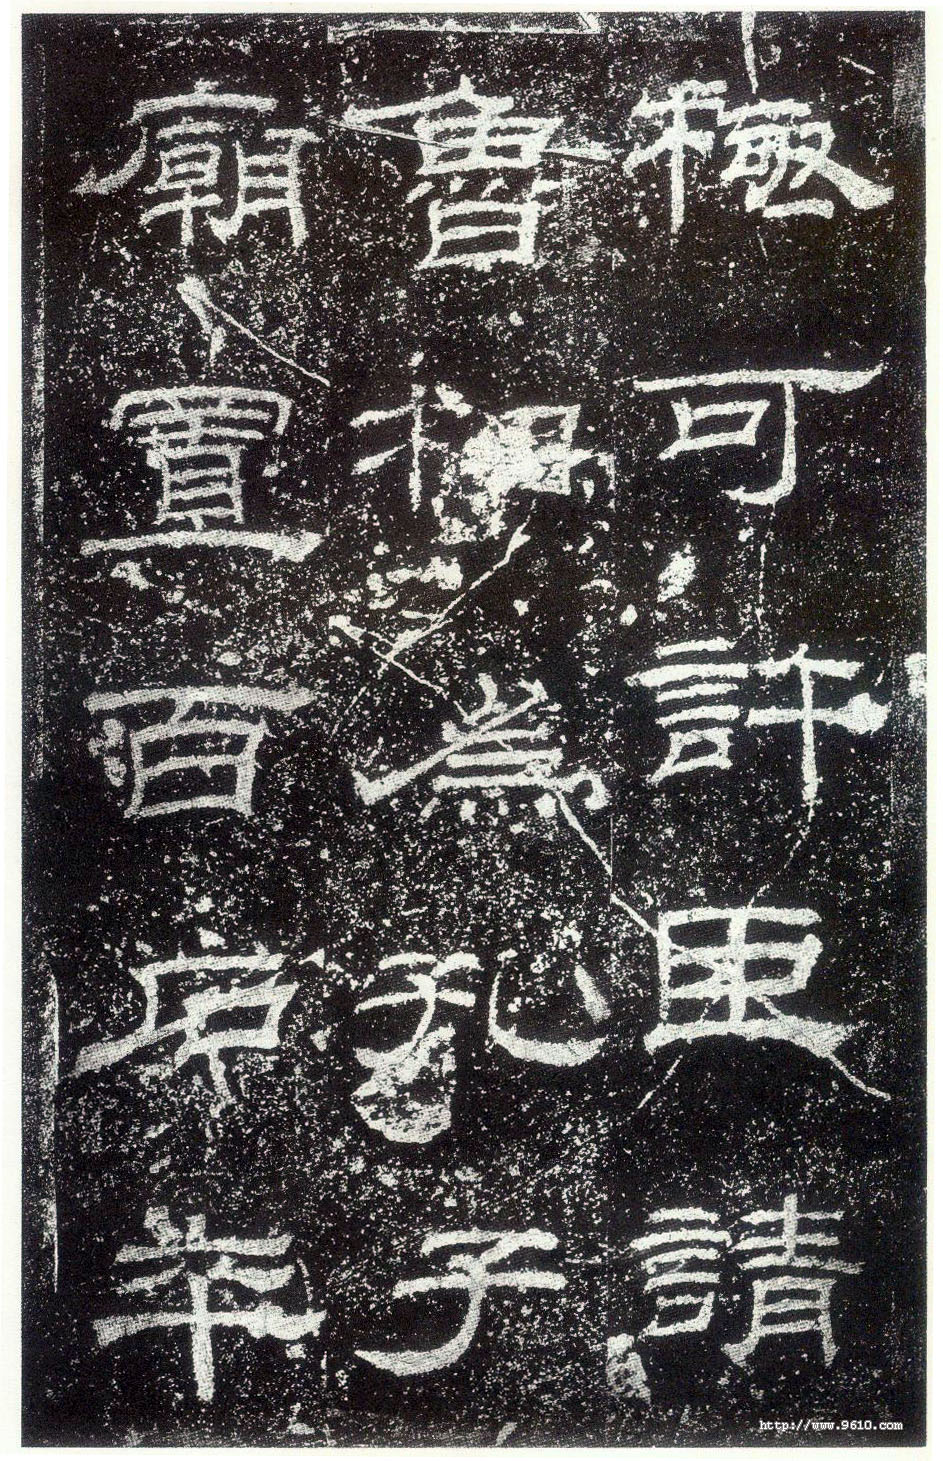 極可許臣請
魯相為孔子
廟置百石卒
http://www.9610.com